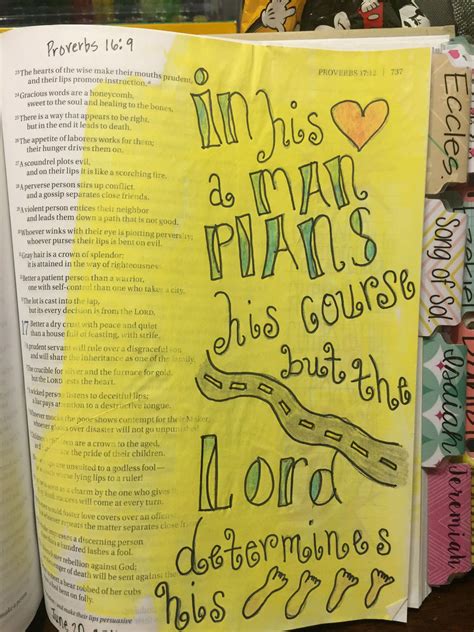 Proverbs 16:9
PROVERBS 17:12 | 737
23 The hearts of the wise make their mouths prudent,
and their lips promote instruction.
24 Gracious words are a honeycomb,
sweet to the soul and healing to the bones.
25 There is a way that appears to be right,
but in the end it leads to death.
26 The appetite of laborers works for them;
their hunger drives them on.
27 A scoundrel plots evil,
and on their lips it is like a scorching fire.
28 A perverse person stirs up conflict,
and a gossip separates close friends.
29 A violent person entices their neighbor
and leads them down a path that is not good.
30 Whoever winks with their eye is plotting perversity;
whoever purses their lips is bent on evil.
31 Gray hair is a crown of splendor;
it is attained in the way of righteousness.
32 Better a patient person than a warrior,
one with self-control than one who takes a city.
33 The lot is cast into the lap,
but its every decision is from the LORD.
17 Better a dry crust with peace and quiet
than a house full of feasting, with strife.
prudent servant will rule over a disgraceful son
and will share the inheritance as one of the family.
crucible for silver and the furnace for gold,
but the LORD tests the heart.
wicked person listens to deceitful lips;
a liar pays attention to a destructive tongue.
Whoever mocks the poor shows contempt for their Maker;
whoever gloats over disaster will not go unpunished.
Children's children are a crown to the aged,
the pride of their children.
lips are unsuited to a godless fool—
worse lying lips to a ruler!
as a charm by the one who gives
success will come at every turn.
would foster love covers over an offense,
repeats the matter separates close
a discerning person
a hundred lashes a fool.
rebellion against God;
of death will be sent against
a bear robbed of her cubs
bent on folly.
make their lips persuasive
June 20
in his
a MAN
PLANS
his course
but the
Lord
determines
his
Eccles.
Song of Sol.
Isaiah
Jeremiah